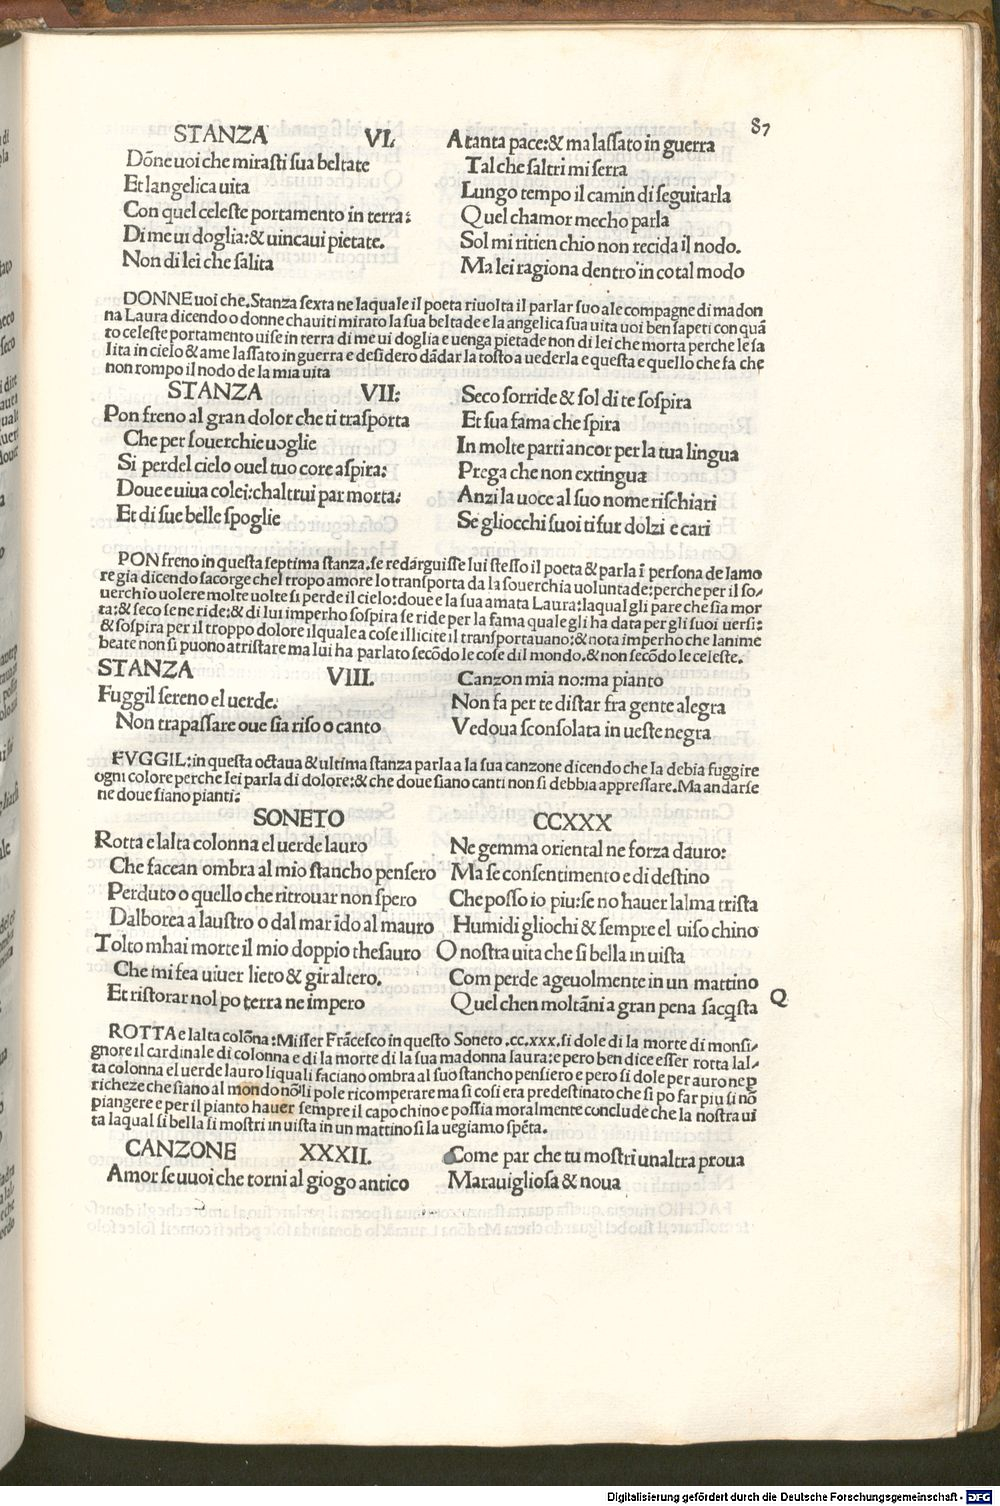 87
STANZA VI.
Dõne uoi che mirasti sua beltate
Et langelica uita
Con quel celeste portamento in terra:
Di me ui doglia:& uincaui pietate.
Non di lei che salita
A tanta pace:& ma lassato in guerra
Tal che saltri mi serra
Lungo tempo il camin di seguitarla
Quel chamor mecho parla
Sol mi ritien chio non recida il nodo.
Ma lei ragiona dentro in cotal modo
DONNE uoi che. Stanza sexta ne laquale il poeta riuolta il parlar suo ale compagne di madon
na Laura dicendo o donne chauiti mirato la sua beltade e la angelica sua uita uoi ben sapeti con quã
to celeste portamento uise in terra di me ui doglia e uenga pietade non di lei che morta perche le sa
lita in cielo & ame lassato in guerra e desidero dãdar la tosto a uederla e questa e quello che fa che
non rompo il nodo de la mia uita
STANZA VII:
Pon freno al gran dolor che ti trasporta
Che per souerchie uoglie
Si perdel cielo ouel tuo core aspira:
Doue e uiua colei:chaltrui par morta:
Et di sue belle spoglie
Seco sorride & sol di te sospira
Et sua fama che spira
In molte parti ancor per la tua lingua
Prega che non extingua
Anzi la uoce al suo nome rischiari
Se gliocchi suoi ti fur dolzi e cari
PON freno in questa septima stanza. se redarguisse lui stesso il poeta & parla ĩ persona de lamo
re gia dicendo sacorge chel tropo amore lo transporta da la souerchia uoluntade:perche per il so/
uerchio uolere molte uolte si perde il cielo:doue e la sua amata Laura:laqual gli pare che sia mor
ta:& seco se ne ride:& di lui imperho sospira se ride per la fama quale gli ha data per gli suoi uersi:
& sospira per il troppo dolore ilquale a cose illicite il transportauano:& nota imperho che lanime
beate non si puono atristare ma lui ha parlato secõdo le cose dil mondo.& non secõdo le celeste.
STANZA VIII.
Fuggil sereno el uerde:
Non trapassare oue sia riso o canto
Canzon mia no:ma pianto
Non fa per te di star fra gente alegra
Vedoua sconsolata in ueste negra
FVGGIL:in questa octaua & ultima stanza parla a la sua canzone dicendo che la debia fuggire
ogni colore perche lei parla di dolore:& che doue siano canti non si debbia appressare. Ma andarse
ne doue siano pianti:
SONETO CCXXX
Rotta e lalta colonna el uerde lauro
Che facean ombra al mio stancho pensero
Perduto o quello che ritrouar non spero
Dal borea a laustro o dal mar ĩdo al mauro
Tolto mhai morte il mio doppio thesauro
Che mi fea uiuer lieto & gir altero.
Et ristorar nol po terra ne impero
Ne gemma oriental ne forza dauro:
Ma se consentimento e di destino
Che posso io piu:se no hauer lalma trista
Humidi gliochi & sempre el uiso chino
O nostra uita che si bella in uista
Com perde ageuolmente in un mattino
Quel chen moltãni a gran pena sacqsta
Q
ROTTA e lalta colõna:Misser Frãcesco in questo Soneto .cc.xxx. si dole di la morte di monsi/
gnore il cardinale di colonna e di la morte di la sua madonna laura:e pero ben dice esser rotta lal/
ta colonna el uerde lauro liquali faciano ombra al suo stancho pensiero e pero si dole per auro ne ꝑ
richeze che siano al mondo nõ li pole ricomperare ma si cosi era predestinato che si po far piu si nõ
piangere e per il pianto hauer sempre il capo chino e possia moralmente conclude che la nostra ui
ta laqual si bella si mostri in uista in un mattino si la uegiamo spẽta.
CANZONE XXXII.
Amor se uuoi che torni al giogo antico
Come par che tu mostri unaltra proua
Marauigliosa & noua
Digitalisierung gefördert durch die Deutsche Forschungsgemeinschaft - DFG